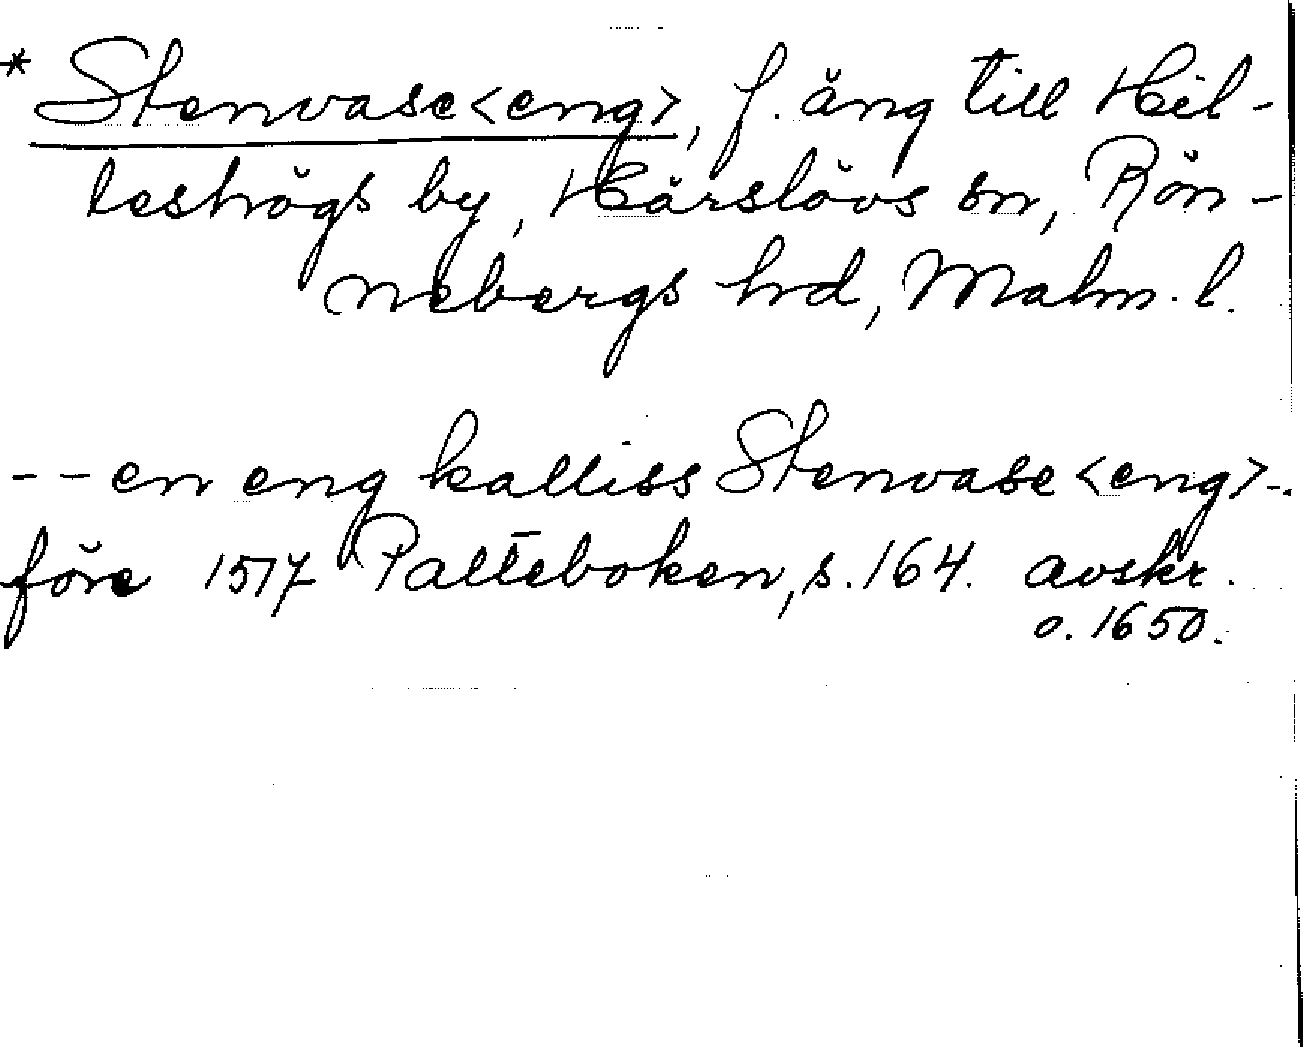 * Stenvase<eng>, f. äng till Hil-
leshögs by, Härslövs sn, Rön-
nebergs hrd, Malm. l.
-- en eng kalliss Stenvase <eng> -.
före 1517 Palteboken, s. 164. avskr.
o. 1650.